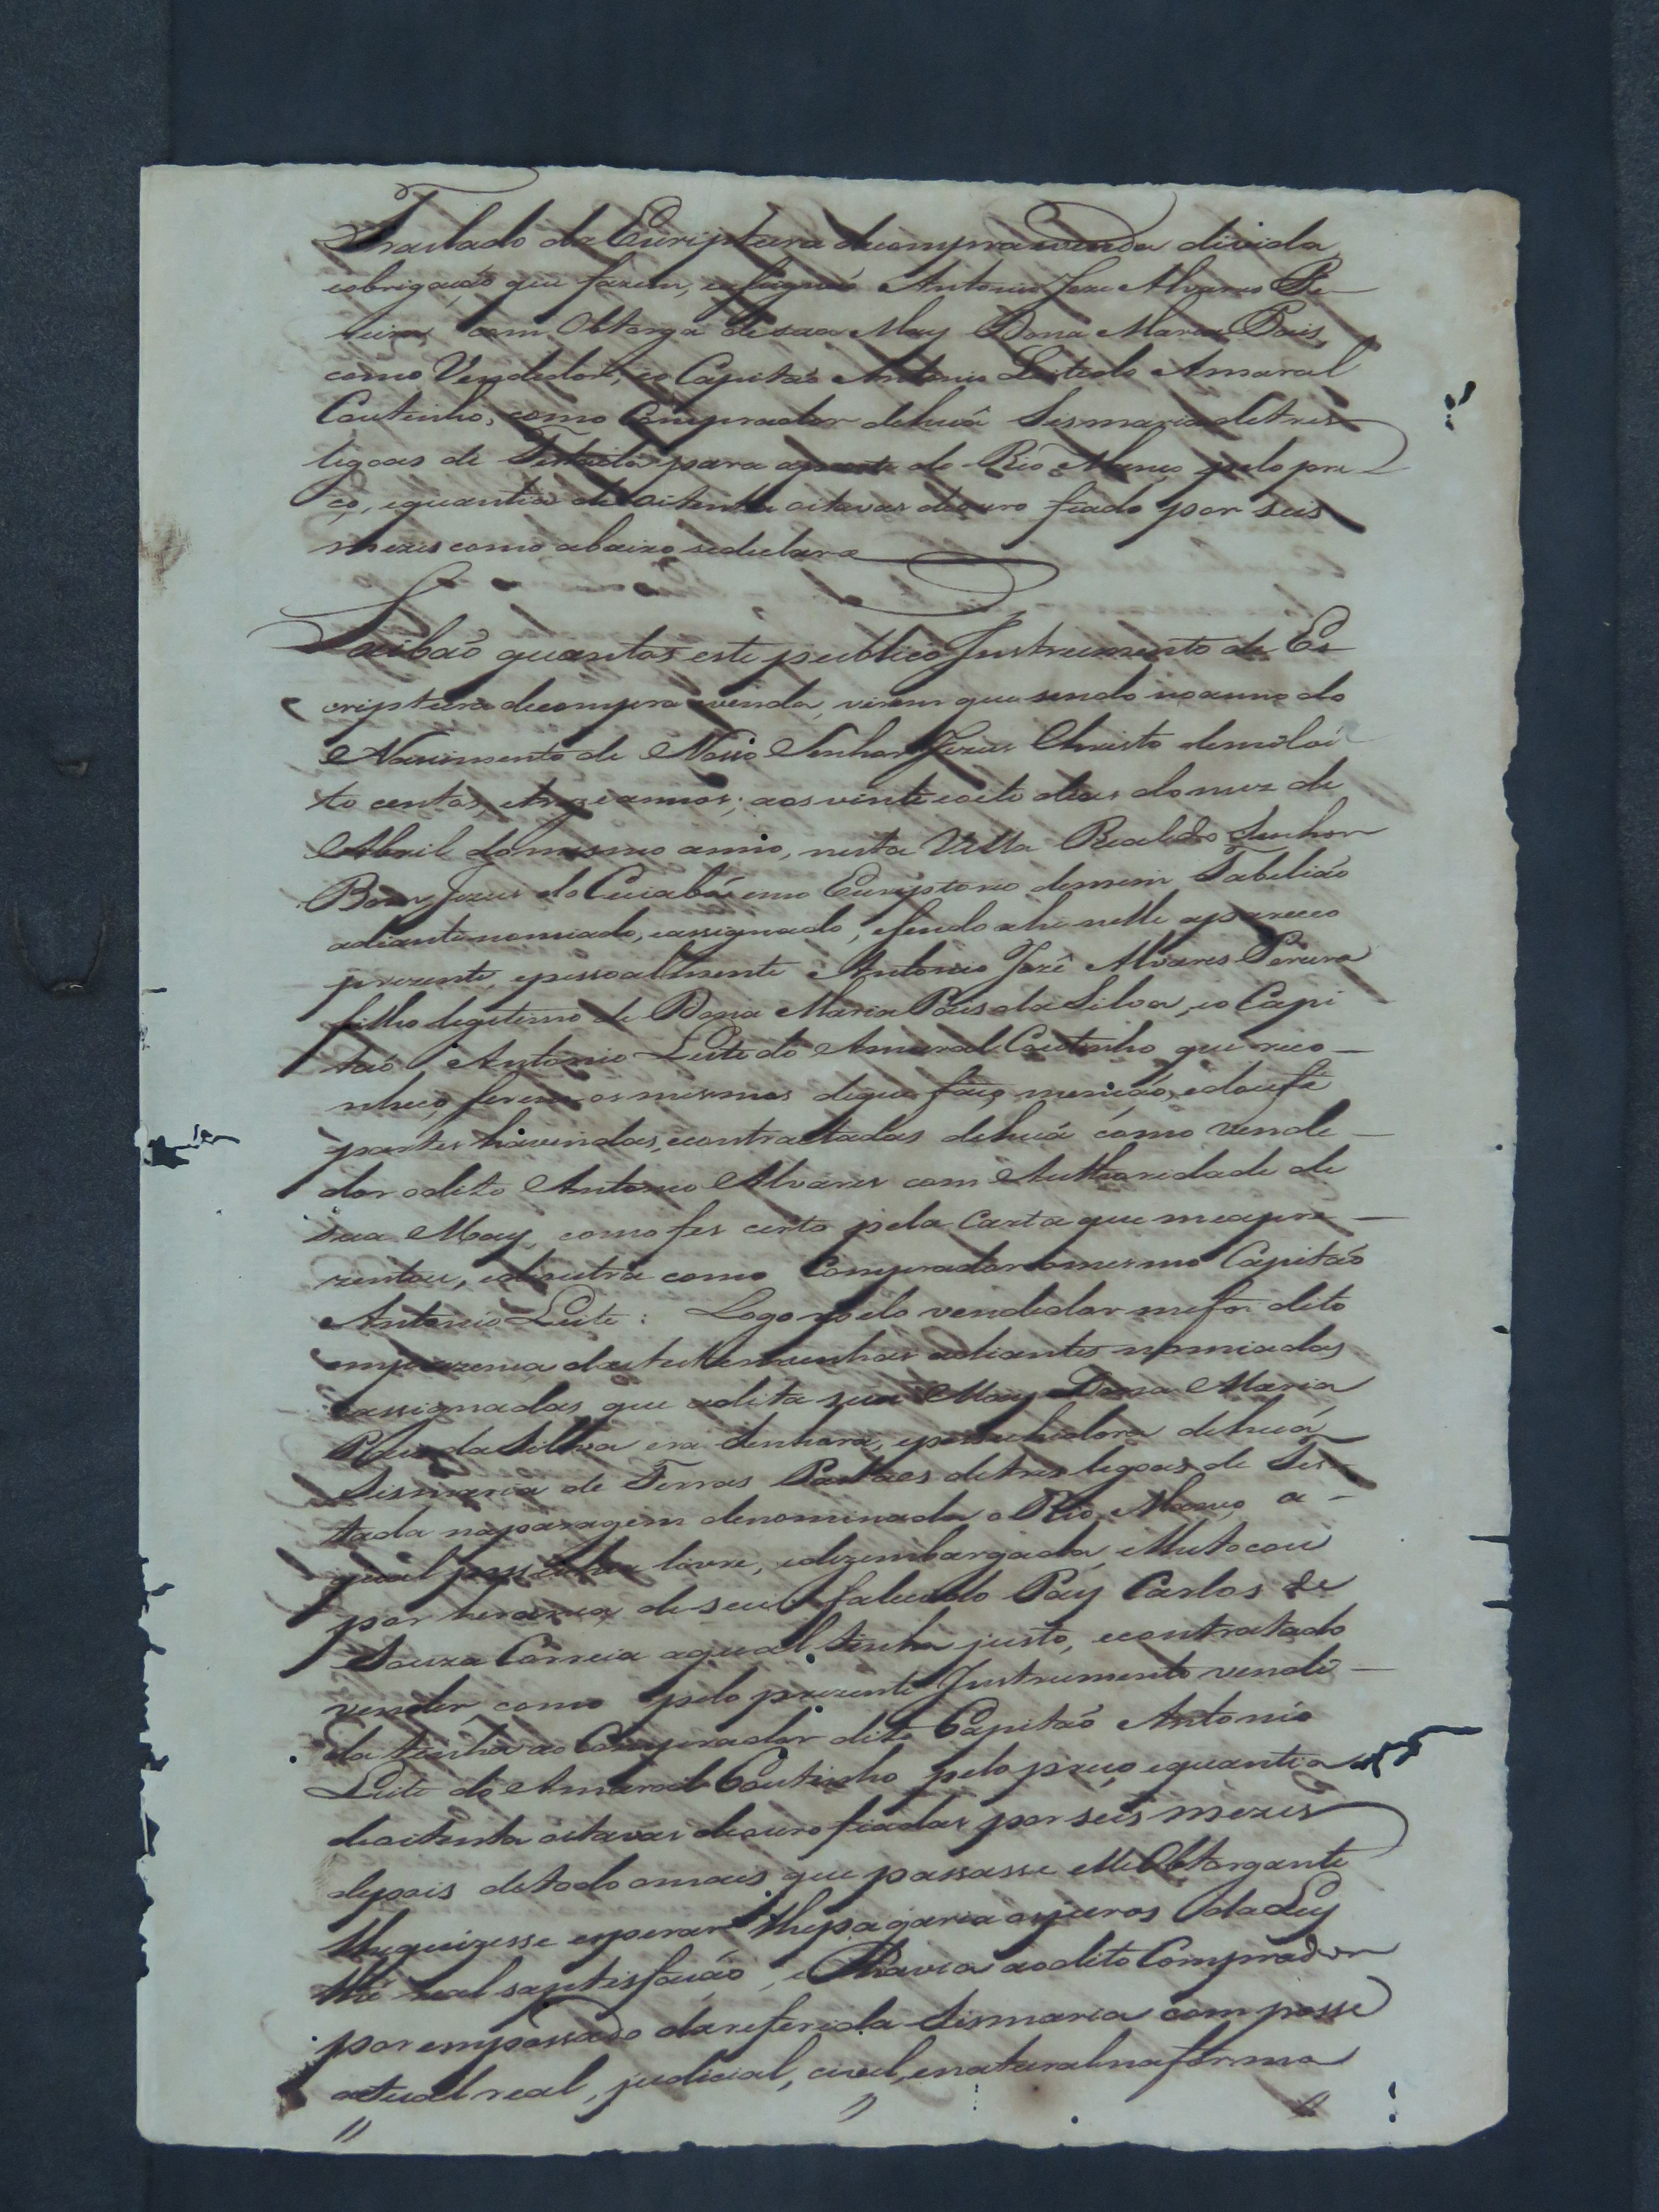 Traslado da Escriptura de compra evenda divida,
eobrigação que fazem, eafignão Antonio Joze Alvares Pe-
reira com Obtorga de sua May Dona Maria Pais,
como Vendedor, eo Capitão Antonio Leite do Amaral
Coutinho, como Comprador dehuã Sesmaria detres
legoas de Testada para aparte do Rio Manço pelo pre
ço, equantia de oitenta oitavas deouro fiado por seis
mezes como abaixo sedeclara
Saibão quantos este publico Instrumento de Es-
criptura decompra evenda, virem que sendo noanno do
Nascimento de Nosso Senhor Jezus Christo demiloi
to centos, etreze annos; aos vinte eoito dias domez de
Abril domesmo anno, nesta Villa Real do Senhor
Bom Jezus do Cuiabá emo Escriptorio demim Tabelião
adiante nomiado, eassignado, efendo ahi nelle apareceo
prezente, epessoalmente Antonio Jozê Alvares Pereira
filho legitimo de Dona Maria Pais da Silva, eo Capi
tão Antonio Leite do Amaral Coutinho que reco-
nheço ferem os mesmos deque faço menção, edoufe
partes havindas, econtractadas dehuã como vende-
dor odito Antonio Alvares com Authoridade de
sua May, como fes certo pela Carta que meapre-
zentou, edeoutra como Comprador omesmo Capitão
Antonio Leite: Logo pelo vendedor mefoi dito
emprezença dastestemunhas adiante nomiadas
eassignadas, que adita sua May Dona Maria
Pais da Silva era Senhora, epessuhidora dehuã
Sesmaria de Terras Lavraes detres legoas de Tes-
tada naparagem denominada o Rio Manço, a-
qual pessuhia livre, edezembargada, elhetocou
por herança de seu falecido Pay Carlos de
Souza Correia aqual tinha justo, econtratado
vender, como pelo prezente Instrumento vendi-
da tinha ao Comprador dito Capitão Antonio
Leite do Amaral Coutinho pelo preço, equantia
deoitenta oitavas deouro fiadas por seis mezes
depois detodo omais que passasse elle Obtorgante
lhequizesse esperar lhepagaria osjuros da Ley
thé real saptisfação, e havia aodito Comprador
por empossado dareferida Sismaria com posse
actual real, judicial, civel, enatural naforma